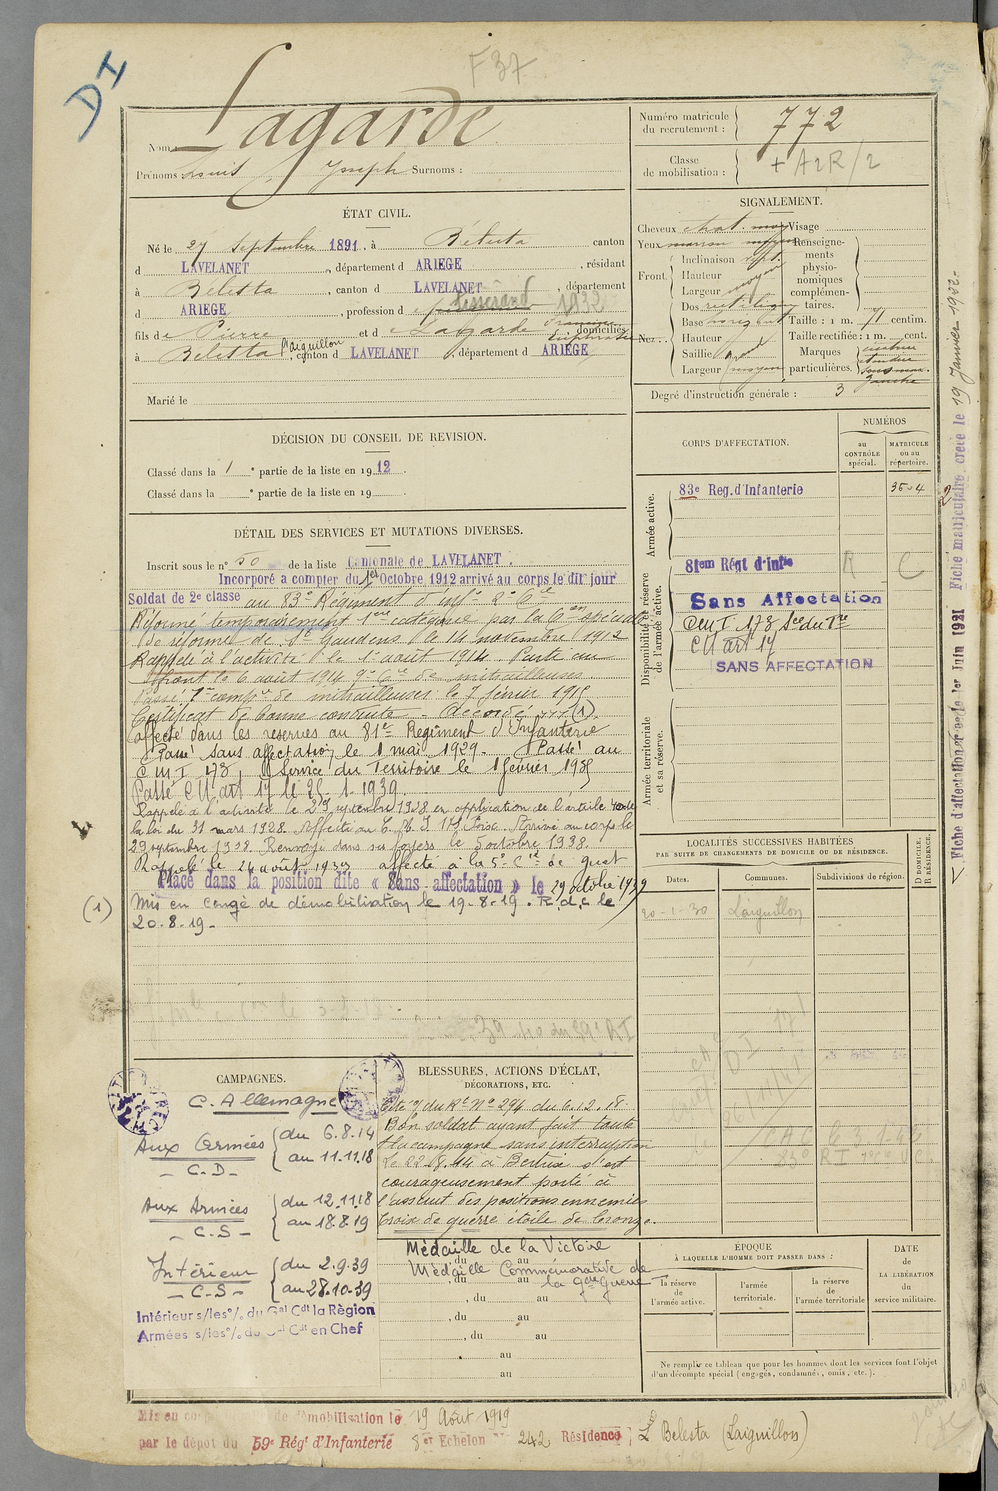 DI
F37
Nom : Lagarde
Prénoms : Louis Joseph Surnoms :
Numéro matricule
du recrutement : 772
Classe
de mobilisation : + A2R/2
ÉTAT CIVIL.
Né le 27 Septembre 1891, à Bélesta canton
d LAVELANET, département d ARIEGE, résidant
à Bélesta, canton d LAVELANET, département
d ARIEGE, profession d tisserand 1932
fils de Pierre et de Lagarde Françoise Euphrasie domiciliés
à Bélesta l'aiguillon, canton d LAVELANET, département d ARIEGE
Marié le
SIGNALEMENT.
Cheveux chat. moy Visage
Yeux marron moyen Renseigne-
ments
physio-
nomiques
complémen-
taires.
Front
Inclinaison vert.
Hauteur moyen
Largeur moy
Nez
Dos rectiligne
Base
Hauteur
Saillie
Largeur moyen
Taille : 1 m. 71 centim.
Taille rectifiée : 1 m. cent.
Marques
particulières.
gauche
Degré d'instruction générale : 3
DÉCISION DU CONSEIL DE REVISION.
Classé dans la 1e partie de la liste en 1912.
Classé dans la e partie de la liste en 19
CORPS D'AFFECTATION.
NUMÉROS
au
CONTRÔLE
spécial.
MATRICULE
ou au
répertoire.
Armée active.
83e Reg. d'Infanterie 3504
Disponibilité et réserve
de l'armée active.
81em Régt d'infie R C
Sans Affectation
CMI 173 Sce du Tre
CM art 17
SANS AFFECTATION
Armée territoriale
et sa réserve.
DÉTAIL DES SERVICES ET MUTATIONS DIVERSES.
Inscrit sous le n° 50 de la liste Cantonale de LAVELANET.
Incorporé a compter du 1er Octobre 1912 arrivé au corps le dit jour
Soldat de 2e classe au 83e Régiment d'infie 2e Cie
Réformé temporairement 1ère catégorie par la Con spéciale
de réforme de St Gaudens le 14 novembre 1912
Rappelé à l'activité le 1er août 1914. Parti au
front le 6 août 1914 9e Cie de mitrailleuses
Passé 1e compie de mitrailleuses le 7 février 1915
Certificat de bonne conduite. Accordé (1)
affecté dans les réserves au 81e Régiment d'Infanterie
Passé sans affectation le 1 mai 1929. Passé au
CMI 173, Service du Territoire le 1 février 1935
Passé CM art 17 le 25.1.1939.
Rappelé à l'activité le 29 septembre 1938 en application de l'article 40 de
la loi du 31 mars 1928. Affecté au C.M.I 173 Foix. Arrivé au corps le
29 septembre 1938. Renvoyé dans ses foyers le 5 octobre 1938.
Rappelé le 24 août 1939 affecté à la 5e Cie de guet
Placé dans la position dite « Sans affectation » le 29 octobre 1939
(1) Mis en congé de démobilisation le 19-8-19. R.d.c le
20-8-19-
LOCALITÉS SUCCESSIVES HABITÉES
PAR SUITE DE CHANGEMENTS DE DOMICILE OU DE RÉSIDENCE.
Dates. Communes. Subdivisions de région.
D DOMICILE.
R RÉSIDENCE.
20-1-30 L'aiguillon
DI
CAMPAGNES.
C. Allemagne
Aux Armées
C.D-
du 6.8.14
au 11.11.18
Aux Armées
- C.S -
du 12.11.18
au 18.8.19
Intérieur
- C.S -
du 2.9.39
au 28.10.39
Intérieur s/les o/. du Gal Cdt la Région
Armées s/les o/. du Gal Cdt en Chef
BLESSURES, ACTIONS D'ÉCLAT,
DÉCORATIONS, ETC.
Cité o/ du Rt N° 294 du 6.12.18.
Bon soldat ayant fait toute
la campagne sans interruption
Le 22.8.14 à Bertrix s'est
courageusement porté à
l'assaut des positions ennemies
Croix de guerre étoile de bronze.
Médaille de la Victoire
Médaille Commémorative de
la gde guerre
, du au
, du au
, du au
au
au
ÉPOQUE
À LAQUELLE L'HOMME DOIT PASSER DANS :
la réserve
de
l'armée active.
l'armée
territoriale.
la réserve
de
l'armée territoriale
DATE
de
LA LIBÉRATION
du
service militaire.
Ne remplir ce tableau que pour les hommes dont les services font l'objet
d'un décompte spécial (engagés, condamnés, omis, etc.).
Mis en congé de démobilisation le 19 Août 1919
par le dépôt du 59e Régt d'Infanterie 8er Echelon n° 242 Résidence, L Belesta (Laiguillon)
Fiche d'affectation créée le 1er Juin 1921 Fiche matriculaire créée le 19 Janvier 1932.-